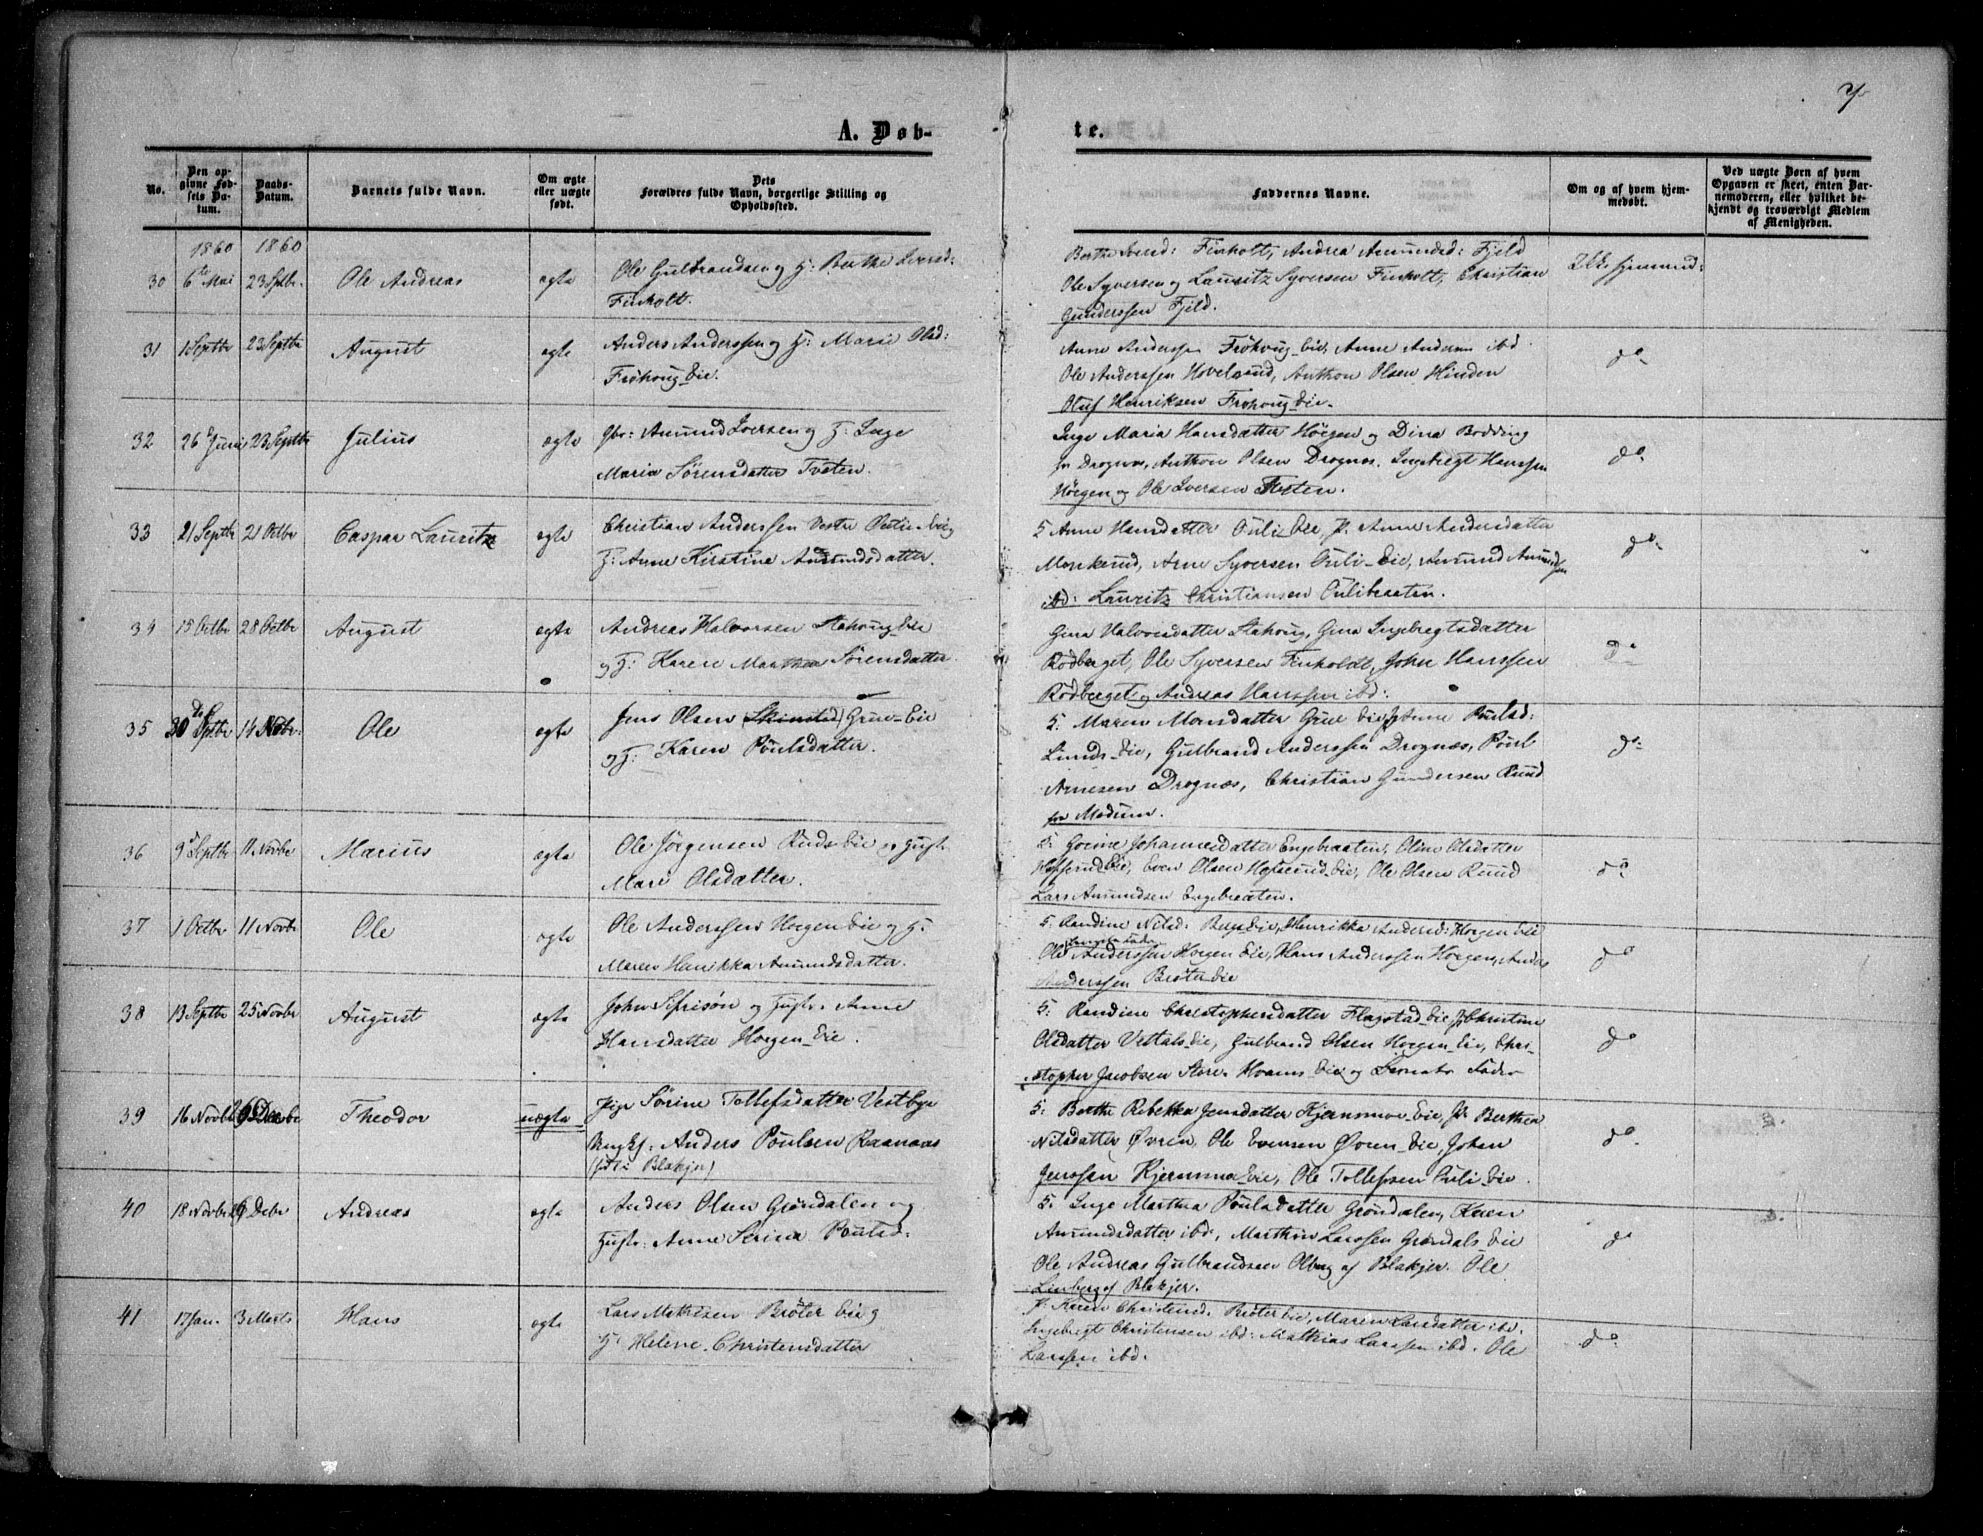 7
A. Døb-
te.
No.
Den opgivne Fødsels Datum.
Daabs-Datum.
Barnets fulde Navn.
Om ægte eller uægte født.
Dets Forældres fulde Navn, borgerlige Stilling og Opholdssted.
Faddernes Navne.
Om og af hvem hjemmedøbt.
Ved uægte Børn af hvem Opgaven er skeet, enten Barnemoderen, eller hvilket bekjendt og troværdigt Medlem af Menigheden.
1860 1860
30 6te Mai 23 Septbr. Ole Andreas ægte Ole Gulbrandsen og H: Berthe Iversd:
Finholt.
Finholt, Andrea Amundsd: Fjeld
Ole Syversen og Lauritz Syversen Finholt, Christian
Gunderssen Fjeld.
31 1 Septbr 23 Septbr August ægte Anders Anderssen og H: Marie Olsd:
Frøhoug-Eie.
Anne Anderssen Frøhoug-Eie, Anne Andersen ibd.
Ole Anderssen Hovelsrud, Anthon Olsen Hinden
Oluf Henriksen Frøhoug-Eie.
do
32 26 Juni 23 Septbr Julius ægte Gbr: Amund Iversen og H: Inge
Maria Sørensdatter Tveten.
Inge Maria Hansdatter Høegen og Dina Bodding
fr Drognæs, Anthon Olsen Drognæs. Ingebregt Hanssen
Høegen og Ole Iversen Tveten.
do
33 21 Septbr 21 Octbr Caspar Lauritz ægte Christian Anderssen Vestre Ouli-Eie og
H: Anne Kirstine Amundsdatter.
5 Anne Hansdatter Ouli-Eie, P. Anne Andersdatter
Monkerud, Arne Syversen Ouli-Eie, Amund Amundsen
ibd: Lauritz Christiansen Oulibraaten.
do
34 15 Octbr 28 Octbr August ægte Andreas Halvorsen Stahoug-Eie
og H: Karen Marthea Sørensdatter.
Gina Halvorsdatter Stahoug, Gina Ingebregtsdatter
Rødberget, Ole Syversen Finholdt, John Hanssen
Rødberget og Andreas Hanssen ibd:
do
35 30 Septbr 14 Novbr. Ole ægte Jens Olsen Grue-Eie
og H: Karen Poulsdatter.
5: Maren Monsdatter Grue Eie, P. Anne Poulsd:
Lunds-Eie, Gulbrand Anderssen Drognæs, Poul
Arnesen Drognæs, Christian Gundersen Ruud
fra Modum.
do
36 9 Septbr 11 Novbr Marius ægte Ole Jørgensen Ruds-Eie og Hust.
Mari Olsdatter.
5: Gorine Johannesdatter Engebraaten, Oline Olsdatter
Eie, Even Olsen Eie, Ole Olsen Ruud
Lars Amundsen Engebraaten.
do
37 1 Octbr 11 Novbr Ole ægte Ole Anderssen Hoegen Eie og H:
Maren Henrikka Amundsdatter.
5: Randine Nilsd: Eie, Henrikka Andersd: Hoegen Eie
Ole Anderssen Hoegen Eie, Hans Anderssen Hoegen, Anders
Anderssen Brøter Eie
do
38 13 Septbr 25 Novbr August ægte John Sifrisøn og Hustr. Anne
Hansdatter Hoegen Eie.
5: Randine Christophersdatter Flagstad-Eie, P. Christine
Olsdatter Vettals-Eie, Gulbrand Olsen Hoegen-Eie, Chri-
stopher Jacobsen Store-Hvams-Eie og Barnets Fader
do
39 16 Novbr 26 Decbr Theodor uægte Pige Sørine Tollefsdatter Vestbye
Ungk. Anders Poulsen Raanaas
(født i Blakjer)
5: Berthe Rebekka Jensdatter Kjernsmoe-Eie, P. Berthea
Nilsdatter Øvren, Ole Evensen Øvren-Eie, Johan
Jenssen Kjernsmoe-Eie, Ole Tollefssen Ouli-Eie.
do
40 18 Novbr 26 Debr Andreas ægte Anders Olsen Grøndalen og
Hustr. Anne Serine Poulsd.
5: Inge Marthea Poulsdatter Grøndalen, Karen
Amundsdatter ibd, Marthin Larssen Grøndals Eie
Ole Andreas Gulbrandsen Olberg af Blakjer. Ole
Linberg af Blakjer.
do
41 17 Jan. 3 Marts Hans ægte Lars Mathisen Brøter Eie og
H: Helene Christensdatter
P. Karen Christensd. Brøter Eie, Maren Larsdatter ibd.
Ingebregt Christensen ibd: Mathias Larssen ibd. Ole
Larssen ibd.
do